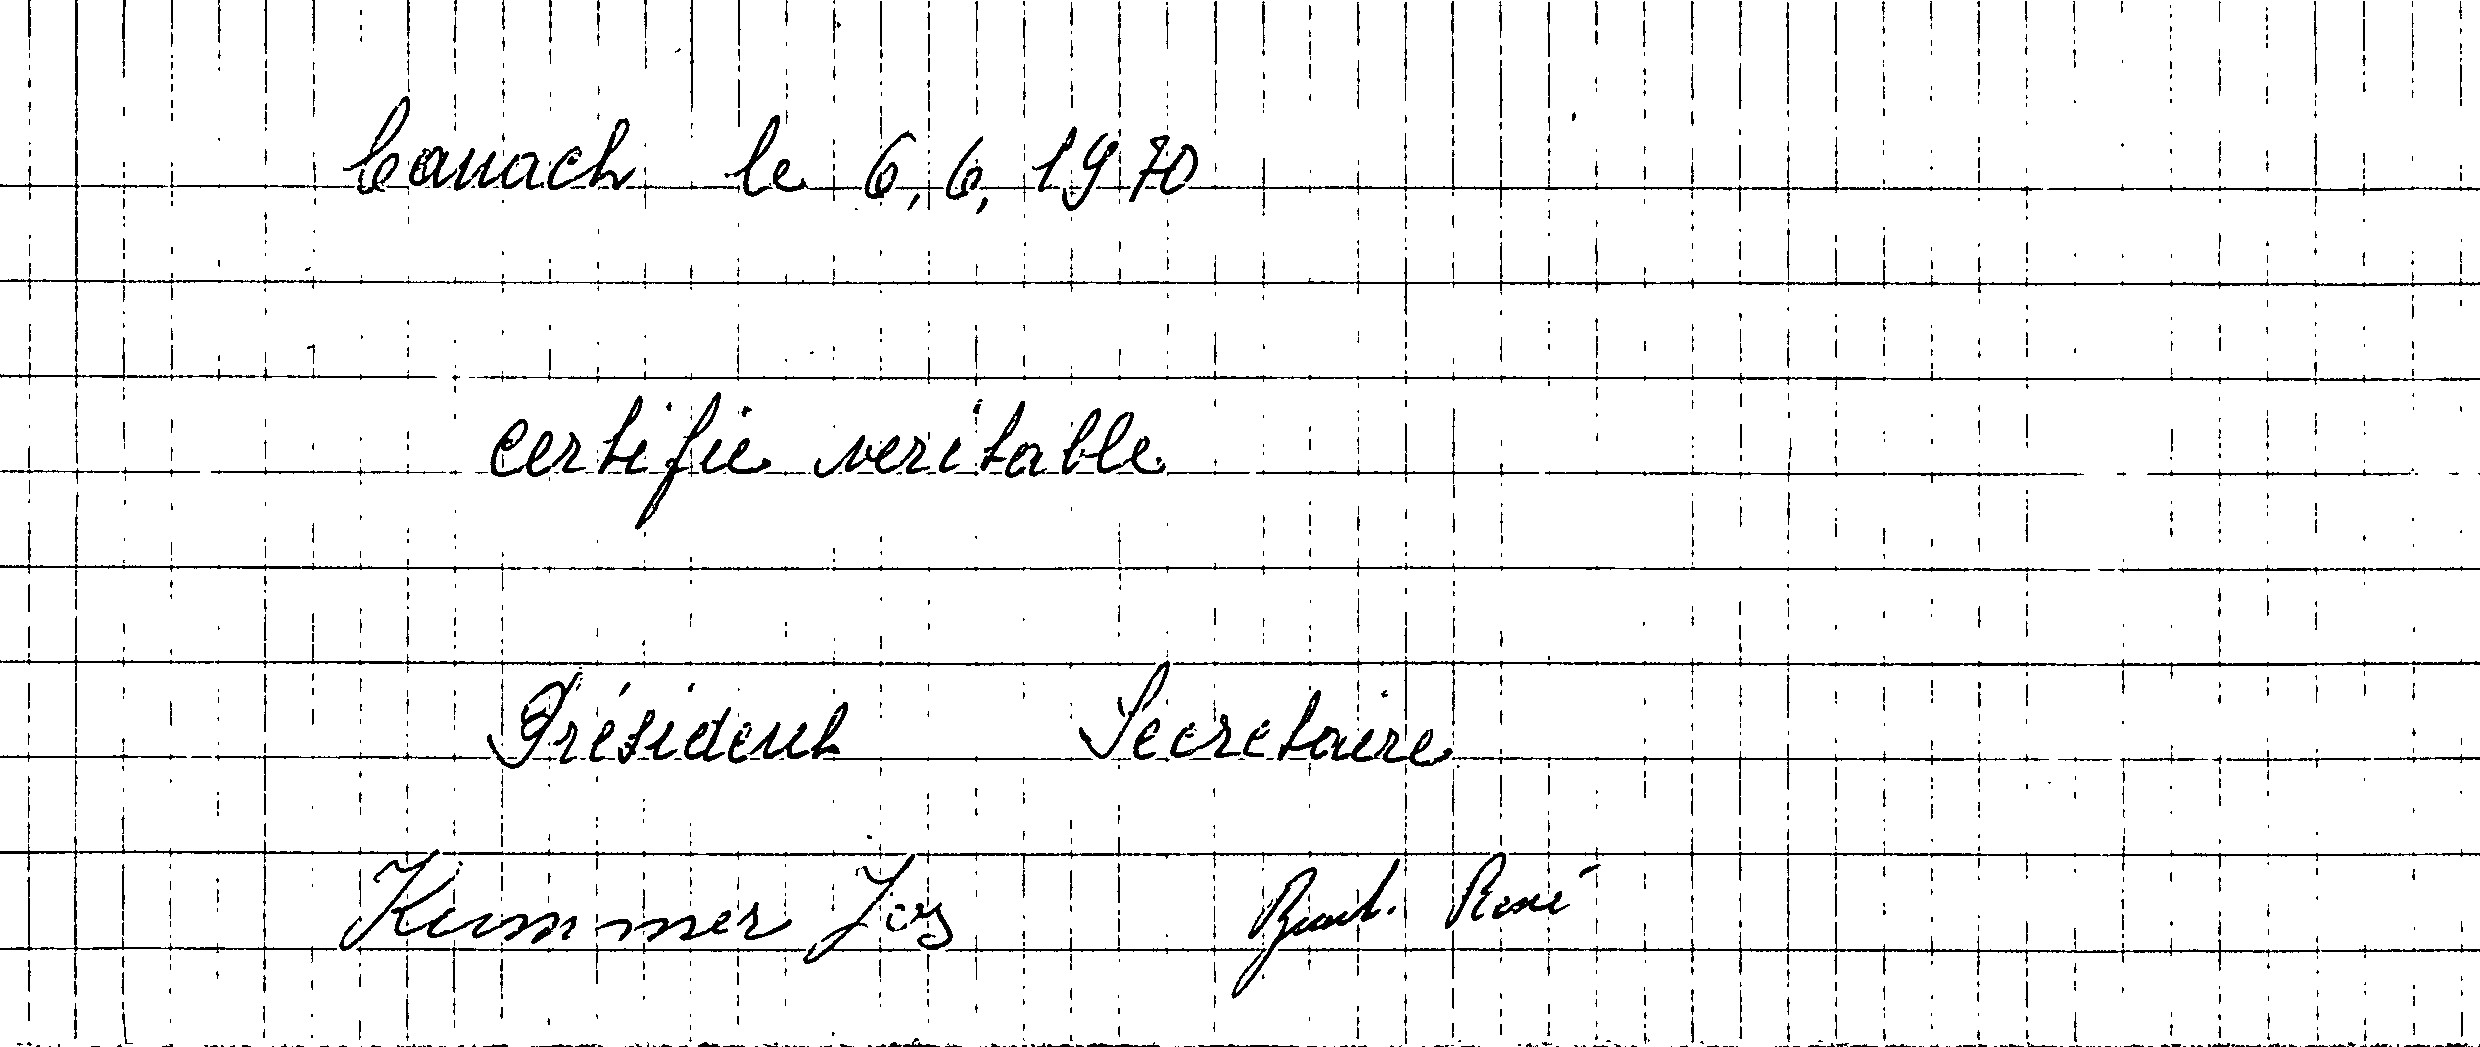 Canach le 6,6, 1970
certifie veritable
Président Secretaire
Kummer Jos René